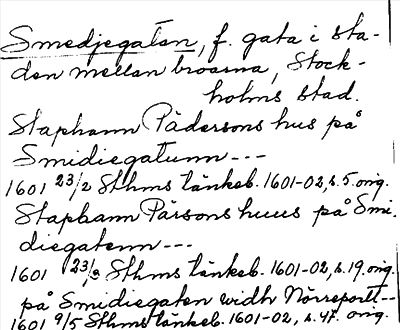 Smedjegatan, f. gata i sta-
den mellan broarna, Stock-
holms stad.
Staphann Pädersons hus på
Smidiegatunn ---
1601 23/2 Sthms tänkeb. 1601-02, s. 5. orig.
Staphann Pärsons huus på Smi-
diegatenn ---
1601 23/3 Sthms tänkeb. 1601-02, s. 19. orig.
på Smidiegaten widh Nörreportt --
1601 9/5 Sthms tänkeb. 1601-02, s. 47. orig.